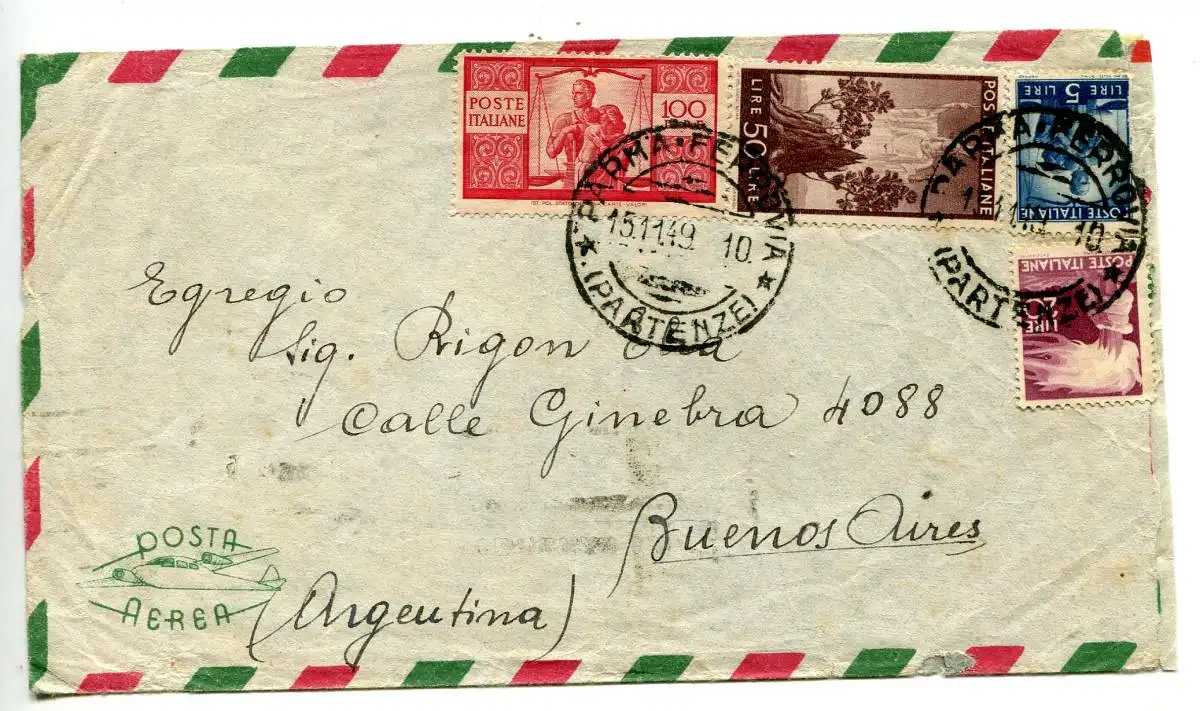 POSTE
ITALIANE
100
IST. POL. STATO CARTE-VALORI
LIRE 50 LIRE
POSTE ITALIANE
5 LIRE
POSTE ITALIANE
POSTE ITALIANE
LIRE
PARMA • FERROVIA
15.11.49. 10.
★ (PARTENZE) ★
PARMA • FERROVIA
10.
★ (PARTENZE) ★
Egregio
Sig. Rigon
Calle Ginebra 4088
Buenos Aires
(Argentina)
POSTA
AEREA